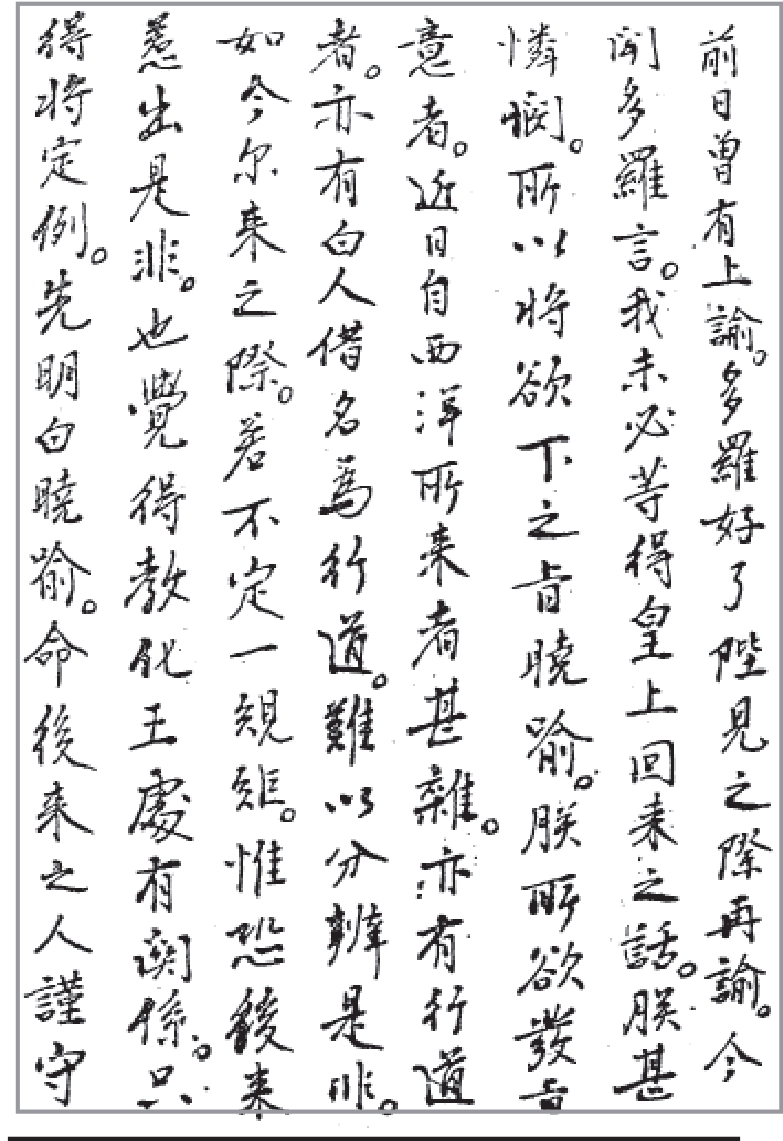 前日曾有上諭。多羅好了陛見之際再諭。今
聞多羅言。我未必等得皇上回来之話。朕甚
憐憫。所以将欲下之旨曉喻。朕所欲發旨
意者。近日自西洋所来者甚雜。亦有行道
者。亦有白人借名為行道。難以分辨是非。
如今尔来之際。若不定一規矩。惟恐後来
惹出是非。也覺得教化王處有関係。只
得将定例。先明白曉喻。命後来之人謹守